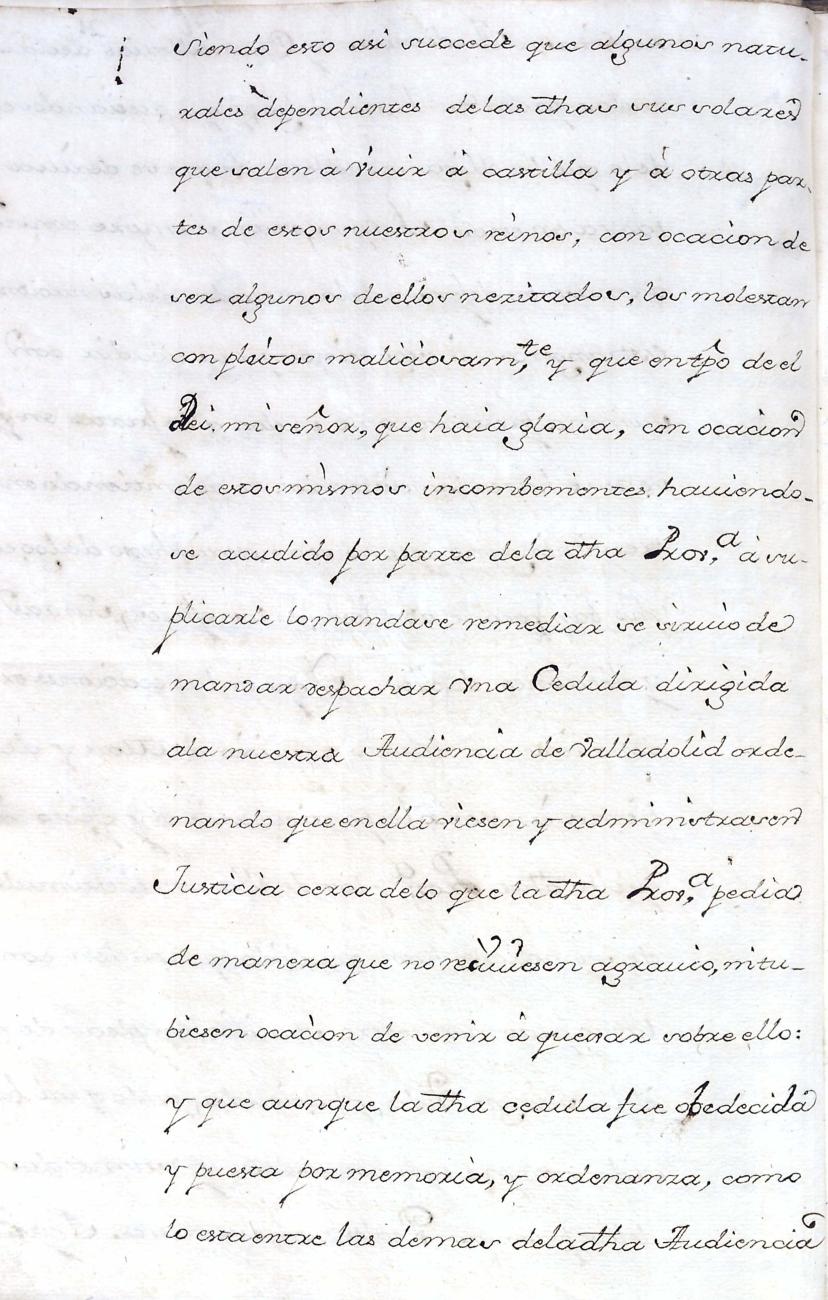 Siendo esto asi succede que algunos natu-
rales dependientes delas dhas sus solares
que salen à viuir à castilla y à otras par-
tes de estos nuestros reinos, con ocacion de
ser algunos de ellos nezitados, los molestan
con pleitos maliciosam,te y que entpõ de el
Rei. mi señor, que haia gloria, con ocacion
de estos mismos incombenientes. hauiendo-
se acudido por parte dela dha Prov,a à su-
plicarle lo mandase remediar se siruio de
mandar despachar vna Cedula dirigida
ala nuestra Audiencia de Valladolid orde-
nando que en ella viesen y administrasen
Justicia cerca de lo que la dha Prov,a pedia
de manera que no reciuiesen agrauio, ni tu-
biesen ocacion de venir à quexar sobre ello:
y que aunque la dha cedula fue obedecida
y puesta por memoria, y ordenanza, como
lo esta entre las demas dela dha Audiencia